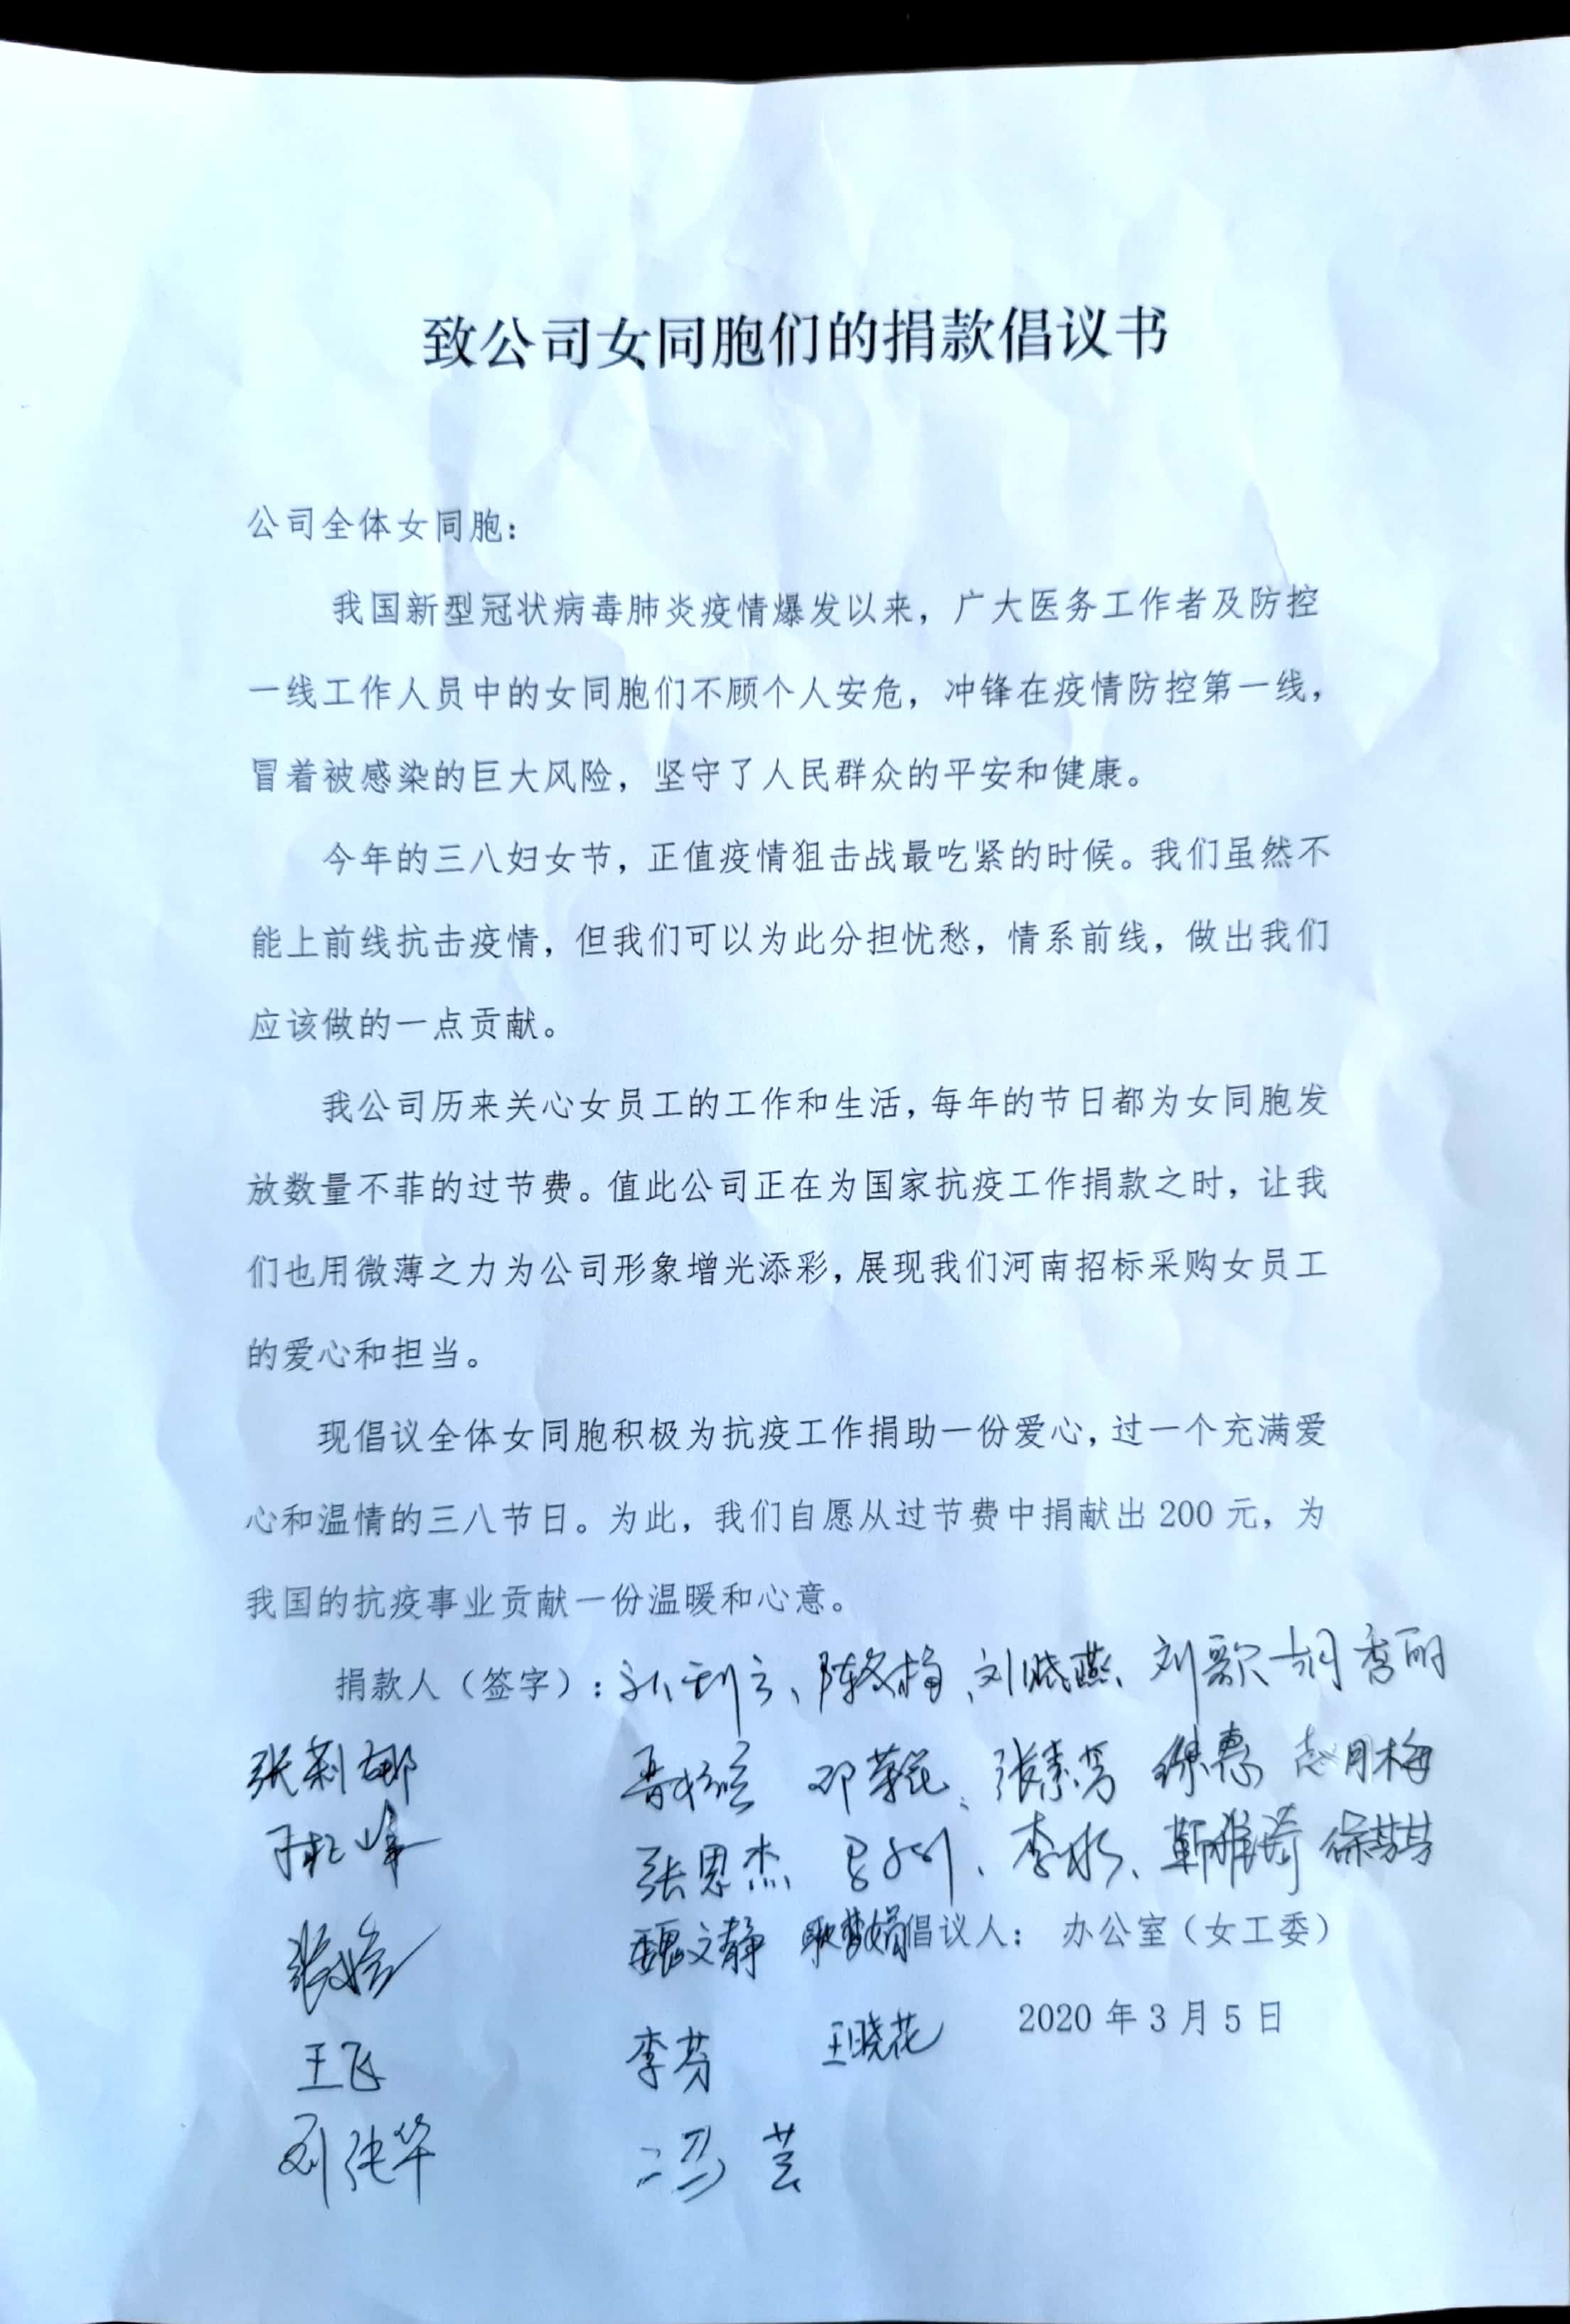 致公司女同胞们的捐款倡议书
公司全体女同胞：
我国新型冠状病毒肺炎疫情爆发以来，广大医务工作者及防控
一线工作人员中的女同胞们不顾个人安危，冲锋在疫情防控第一线，
冒着被感染的巨大风险，坚守了人民群众的平安和健康。
今年的三八妇女节，正值疫情狙击战最吃紧的时候。我们虽然不
能上前线抗击疫情，但我们可以为此分担忧愁，情系前线，做出我们
应该做的一点贡献。
我公司历来关心女员工的工作和生活，每年的节日都为女同胞发
放数量不菲的过节费。值此公司正在为国家抗疫工作捐款之时，让我
们也用微薄之力为公司形象增光添彩，展现我们河南招标采购女员工
的爱心和担当。
现倡议全体女同胞积极为抗疫工作捐助一份爱心，过一个充满爱
心和温情的三八节日。为此，我们自愿从过节费中捐献出 200 元，为
我国的抗疫事业贡献一份温暖和心意。
捐款人（签字）：陈冬梅、刘晓燕、刘歌 胡秀丽
张莉娜 张素芳 徐惠 赵月梅
张思杰 李冰、靳雅琦 徐芬芬
魏文静 耿梦娟 倡议人： 办公室（女工委）
2020 年 3 月 5 日
王飞 李芬 王晓花
冯芸